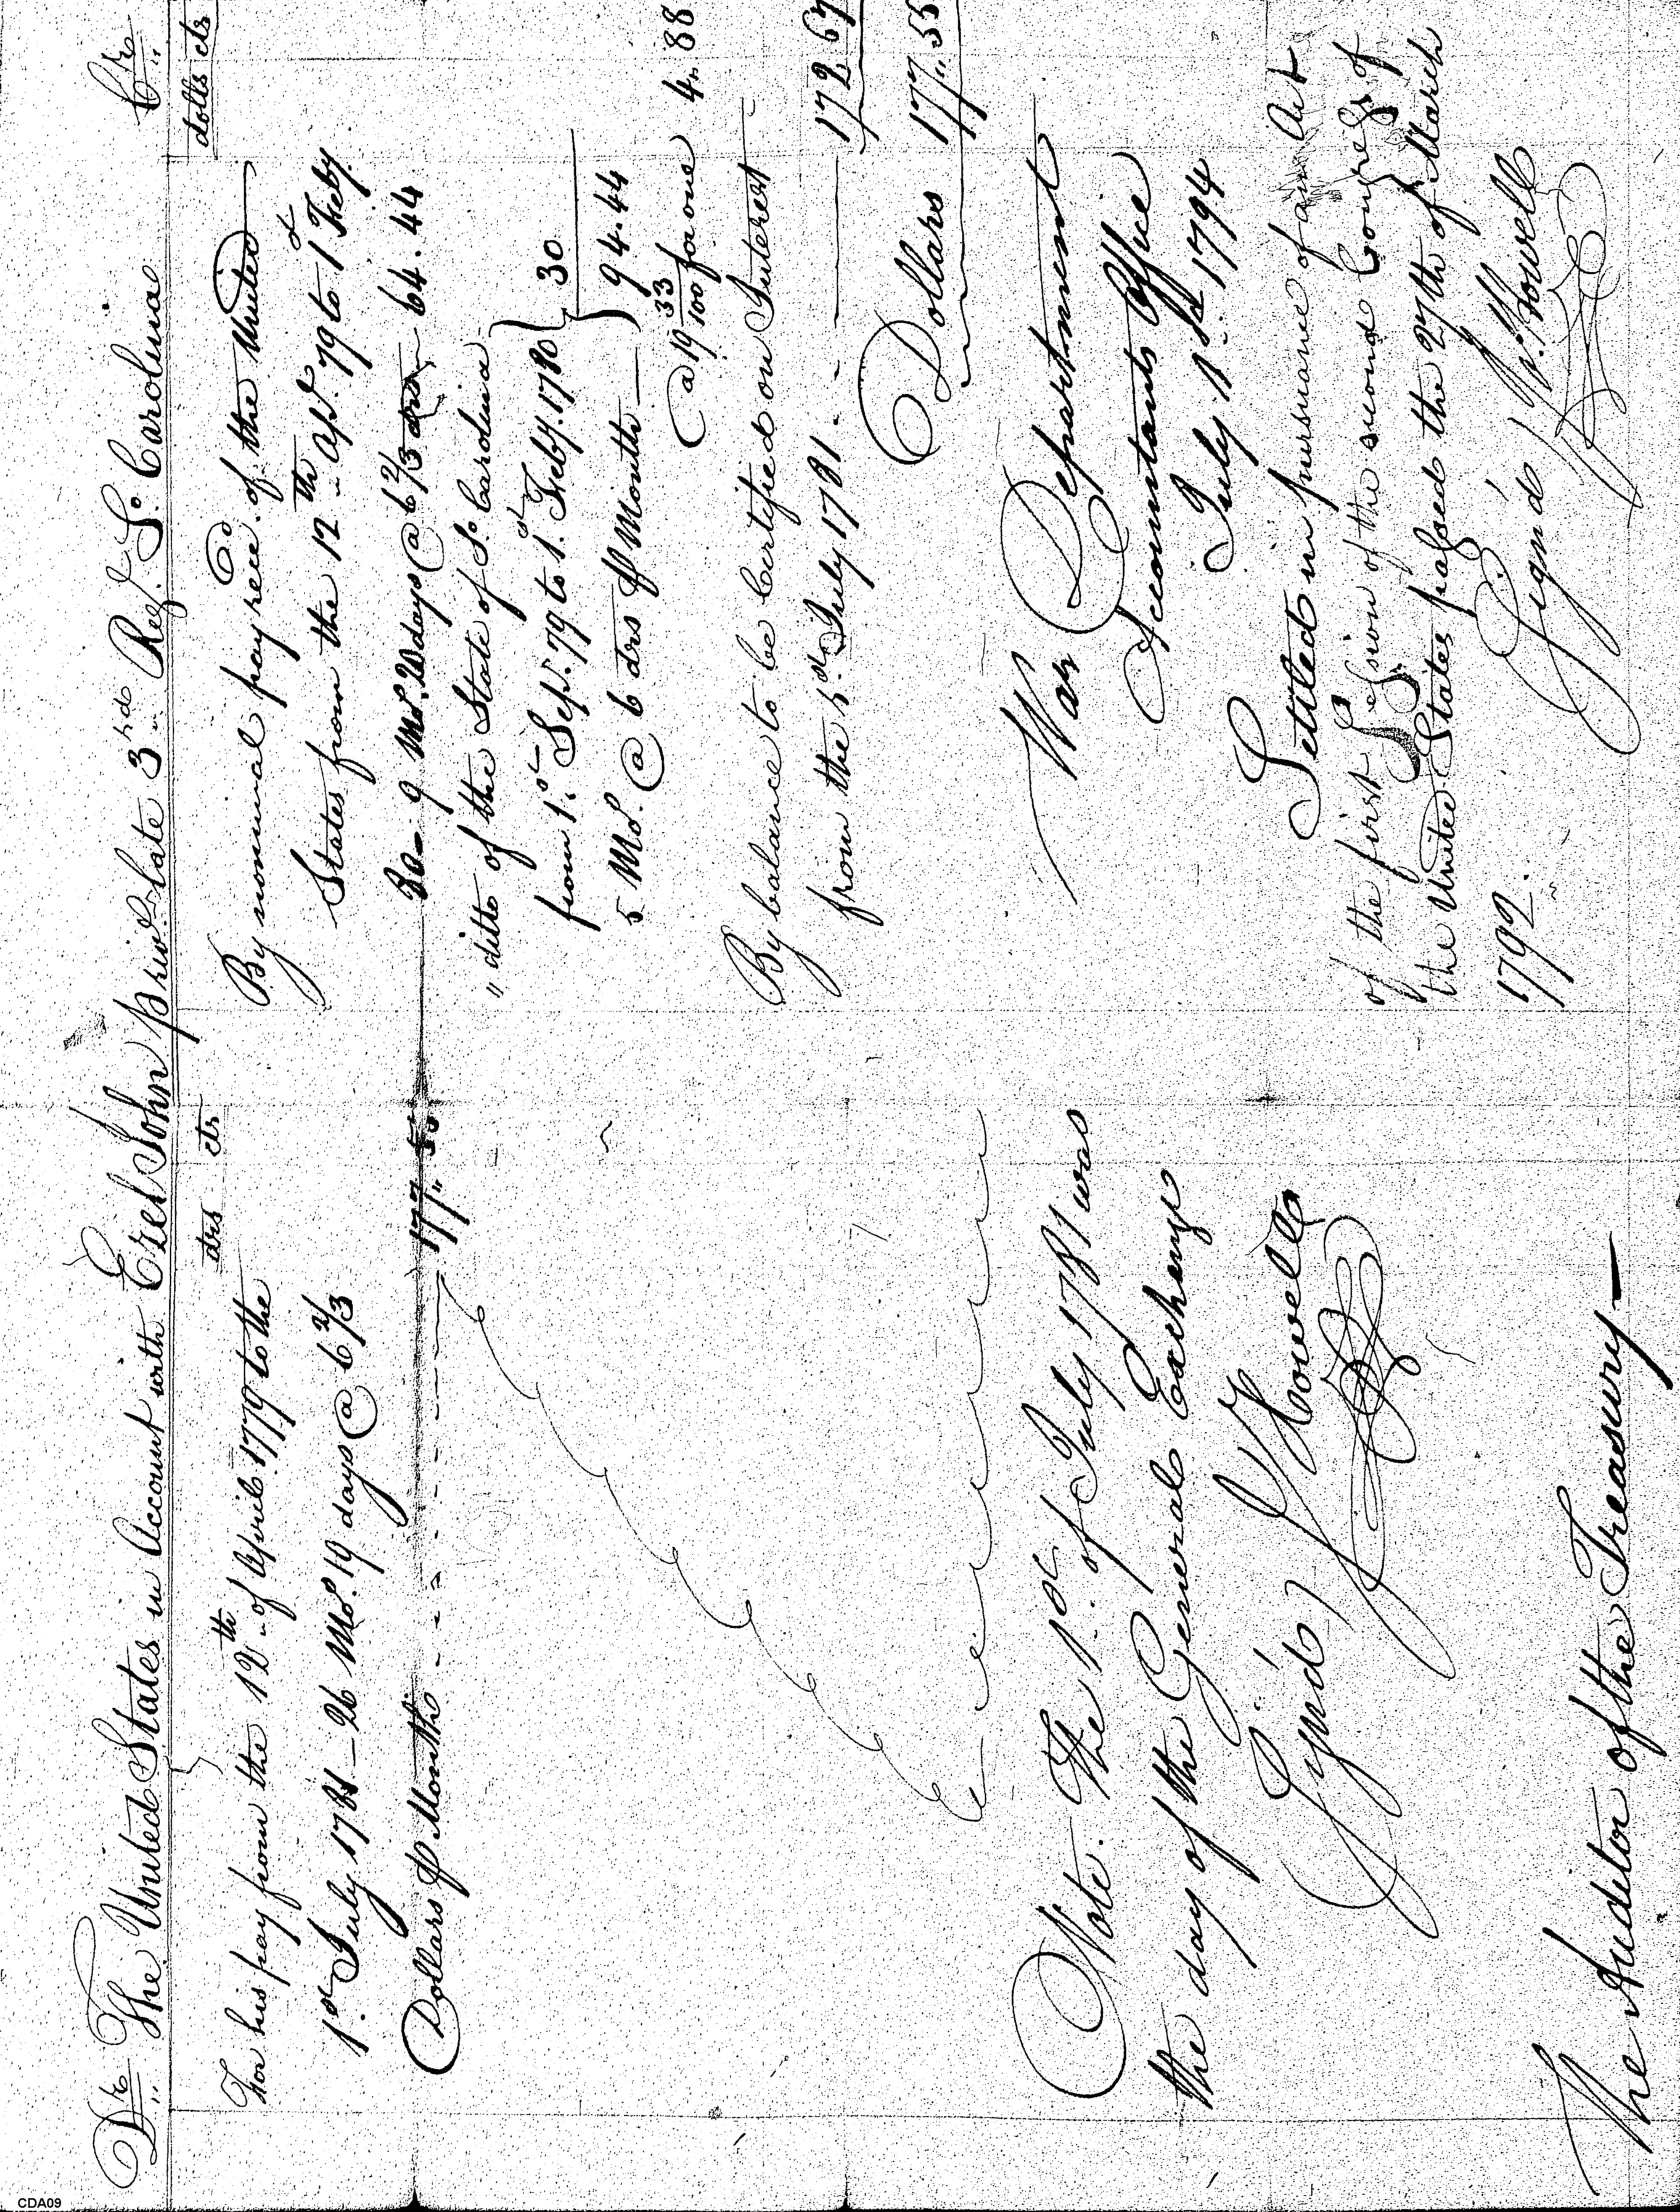 Dr. The United States in Account with Ezel John priv.t late 3.rd Reg.t S.o Carolina Cr.
drs cts
For his pay from the 12.th of April 1779 to the
1.st July 1781 — 26 Mo.s 19 days @ 6 2/3
Dollars ⅌ Month - - - - - 177,, 55
Note. The 1.st of July 1781 was
the day of the General Exchange
Sign'd J Howell
The Auditor of the Treasury —
dolls cts
By nominal pay rece.d of the United
States from the 12.th Ap.l 79 to 1 Feby.
80 — 9 Mo.s 20 days @ 6 2/3 drs 64.44
" ditto of the State of S.o Carolina
from 1.st Sep.t 79 to 1.st Feby. 1780
5 Mo.s @ 6 drs ⅌ Month — 30
94.44
@ 19 33/100 for one 4,, 88
By balance to be Certified on Interest
from the 1.st July 1781 - - — 172 67
Dollars 177,, 55
War Department
Accountants Office
July 1.st 1794
Settled in pursuance of an Act
of the first Session of the second Congress of
the United States passed the 27th of March
1792.
Sign'd J Howell
CDA09